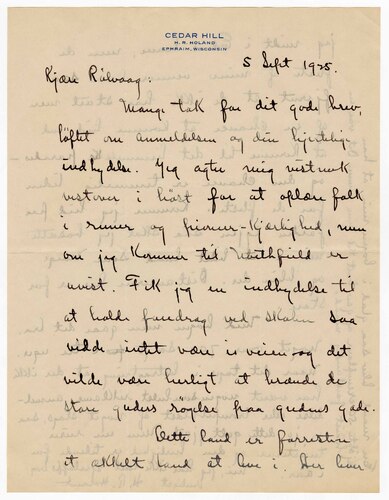 CEDAR HILL
H. R. HOLAND
EPHRAIM, WISCONSIN
5 Sept 1925.
Kjære Rölvaag:
Mange tak for dit gode brev,
löftet om anmeldelsen og din hjertelige
indbydelse. Jeg agter mig vistnok
vestover i höst for at oplære folk
i runer og pioner-Kjærlighed, men
om jeg Kommer til Northfield er
uvist. Fik jeg en indbydelse til
at holde foredrag ved skolen saa
vilde intet være i veien og det
vilde være herligt at brænde de
store guders rögelse paa gudens gade.
Dette land er forresten
et at leve i. Her lever